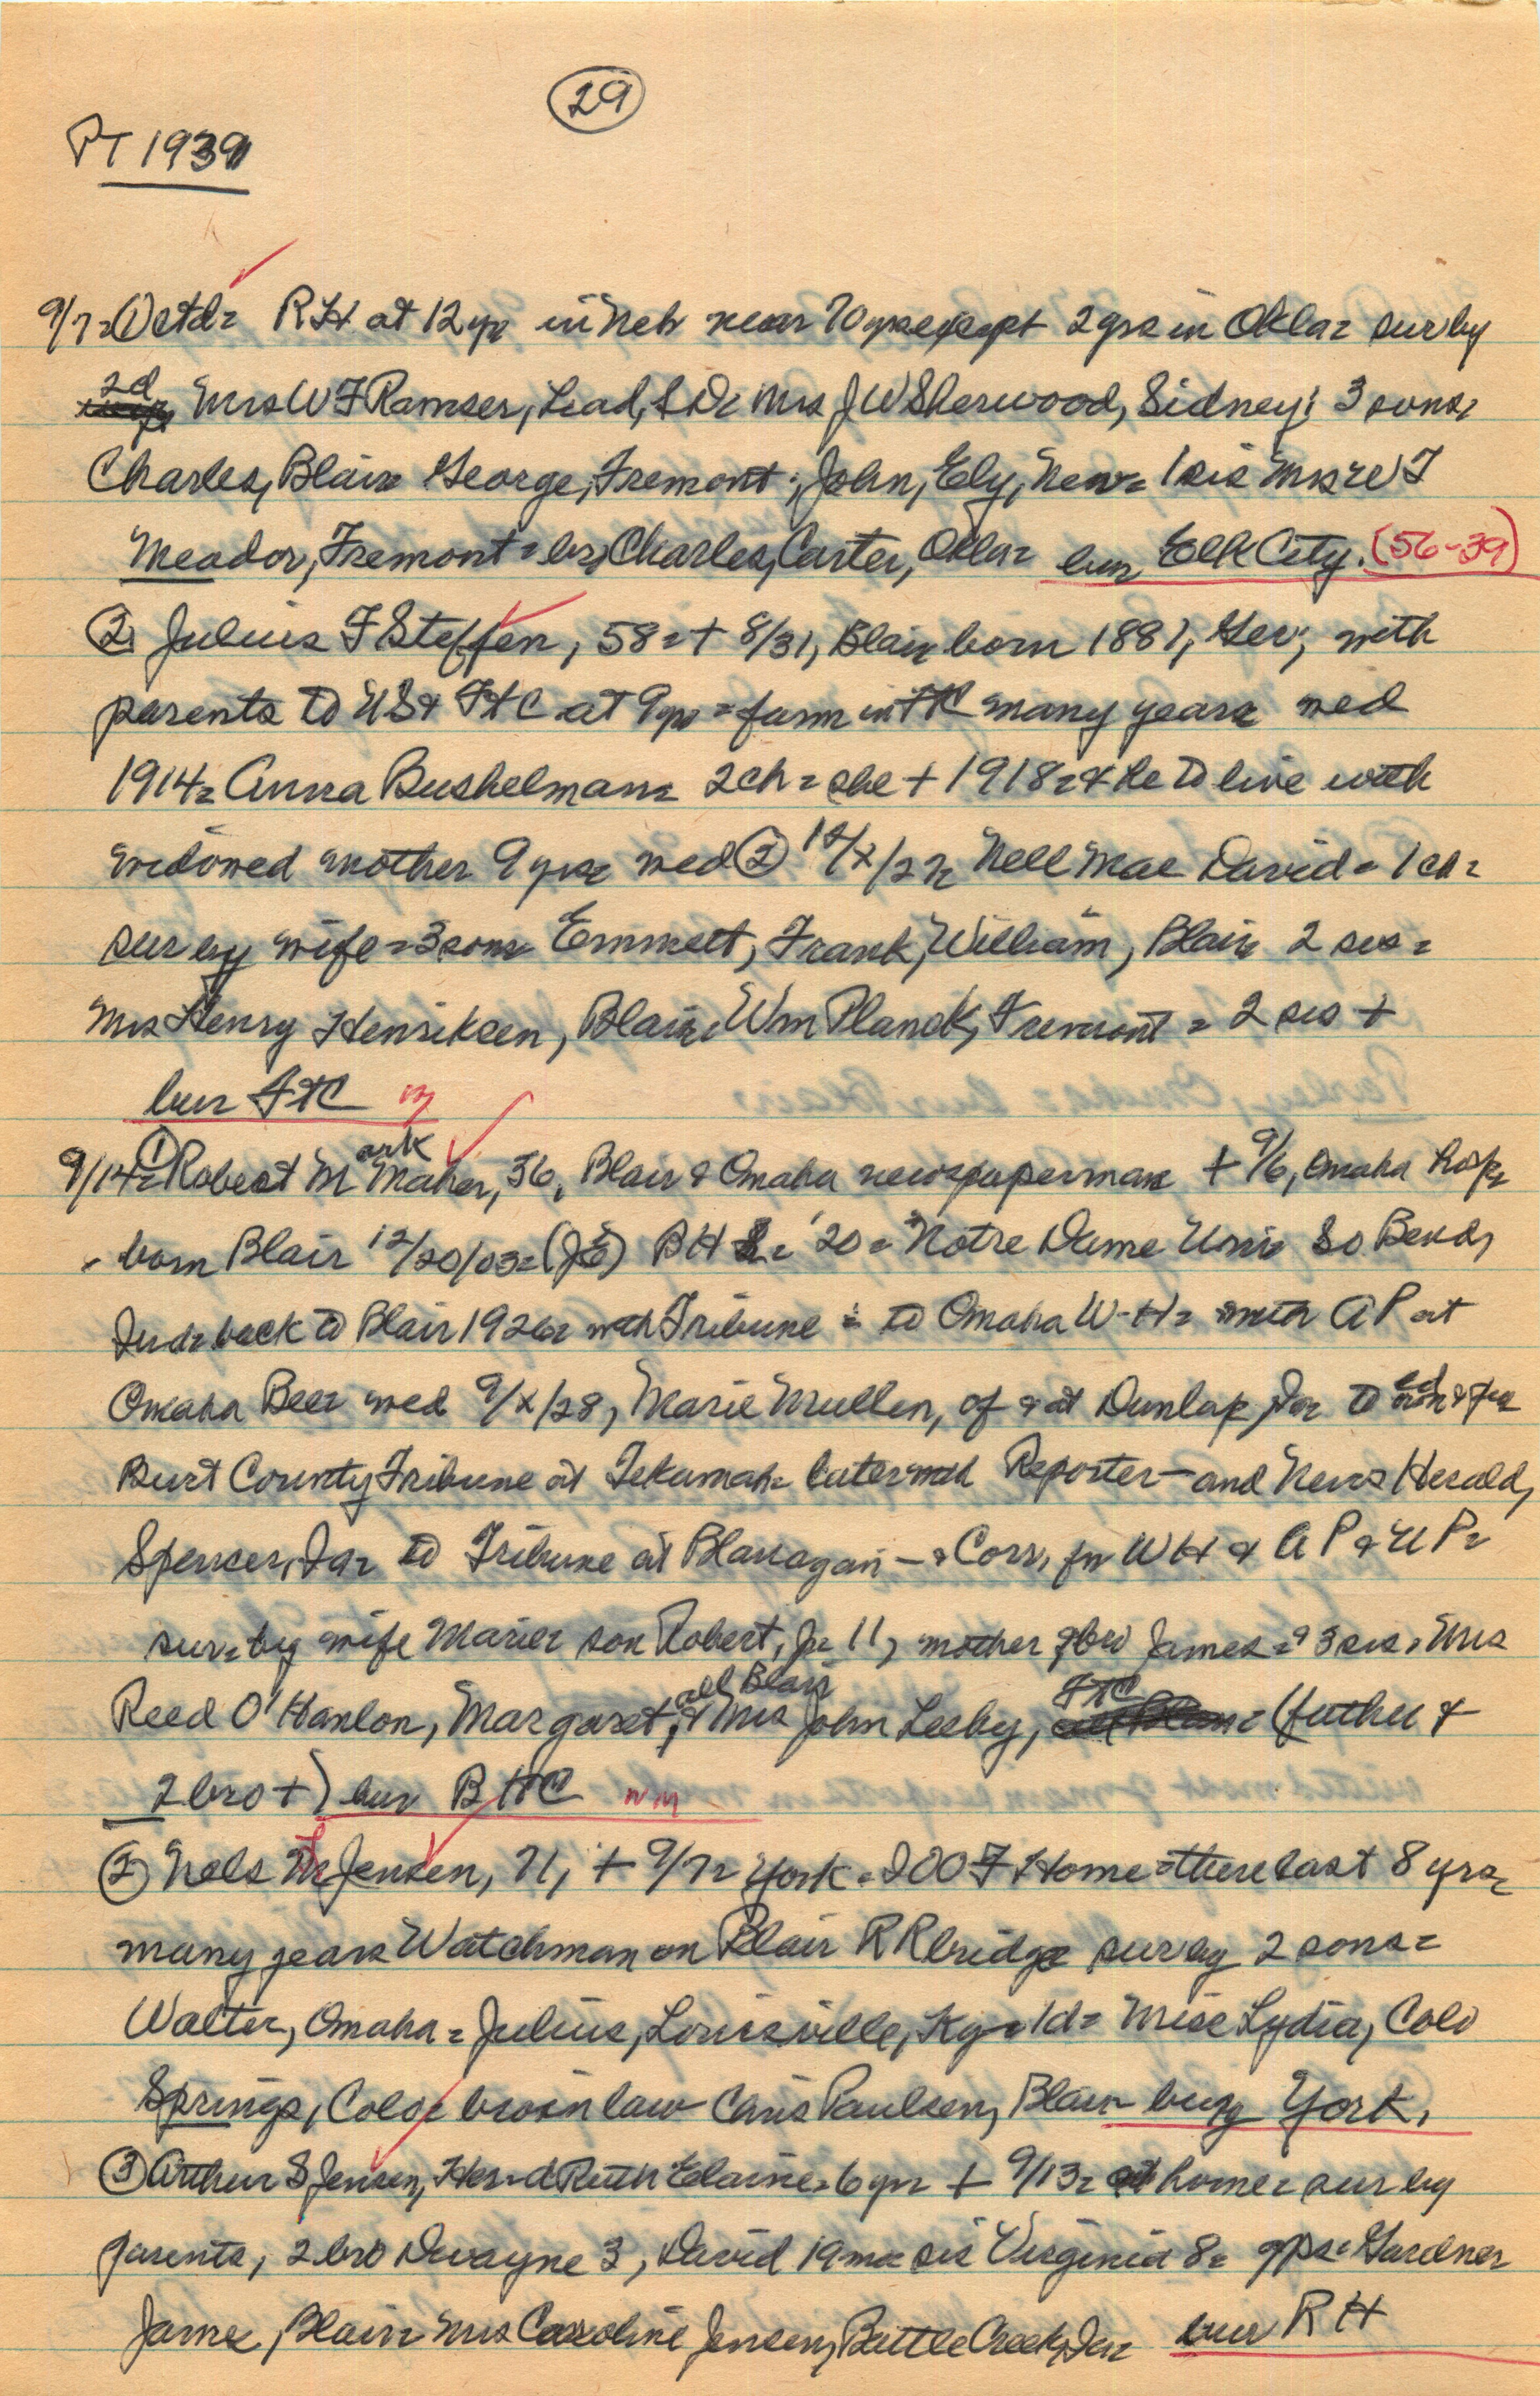 29
PT 1939
9/7= ① ctd= RH at 12 yr in Neb near 70 yrs except 2 yrs in Okla= sur by
2d Mrs W F Ramser, Lead, S D= Mrs J W Sherwood, Sidney; 3 sons,
Charles, Blair= George, Fremont; John, Ely, Nev= 1 sis Mrs W T
Meador, Fremont= bro, Charles, Carter, Okla= bur Elk City. (56-39)
② Julius F Steffen, 58=+ 8/31, Blair born 1881, Ger; with
parents to US & FtC at 9 yr = farm in FtC many years med
1914= Anna Bushelman= 2 ch= she + 1918= & he to live with
widowed mother 9 yrs= med ② 12/x/27= Nell Mae David= 1 ch=
sur by wife=3 sons Emmett, Frank, William, Blair 2 sis=
Mrs Henry Henriksen, Blair, Wm Planck, Fremont= 2 sis +
bur FtC
9/14= ① Robert Mark Maher, 36, Blair & Omaha newspaperman + 9/6, Omaha hosp=
born Blair 12/20/03= BHS= '20= Notre Dame Univ So Bend,
Ind= back to Blair 1926= with Tribune = to Omaha W-H= with AP at
Omaha Bee= med 9/x/28, Marie Mullen, of & at Dunlap, Ia= to ed
Burt County Tribune at Tekamah= later with Reporter - and News Herald,
Spencer, Ia= to Tribune at Blair again - & Corr. for WH & AP & UP=
sur= by wife Marie= son Robert, Jr= 11, mother & bro James= & 3 sis, Mrs
Reed O'Hanlon, Margaret, all Blair & Mrs John Leeby, FtC = (father &
2 bro +) bur BHC
② Nels Jensen, 71, + 9/7= York = IOOF Home= there last 8 yrs=
many years Watchman on Blair RR bridge sur by 2 sons=
Walter, Omaha= Julius, Louisville, Ky= 1d= Miss Lydia, Colo
Springs, Colo= bro in law Chris Paulsen, Blair bur York.
③ Arthur S Jensen, Her= d Ruth Elaine= 6 yr + 9/13= at home= sur by
parents, 2 bro Dwayne 3, David 19 mo= sis Virginia 8= gps= Gardner
James, Blair= Mrs Carroline Jensen, Battle Creek, Ia= bur RH